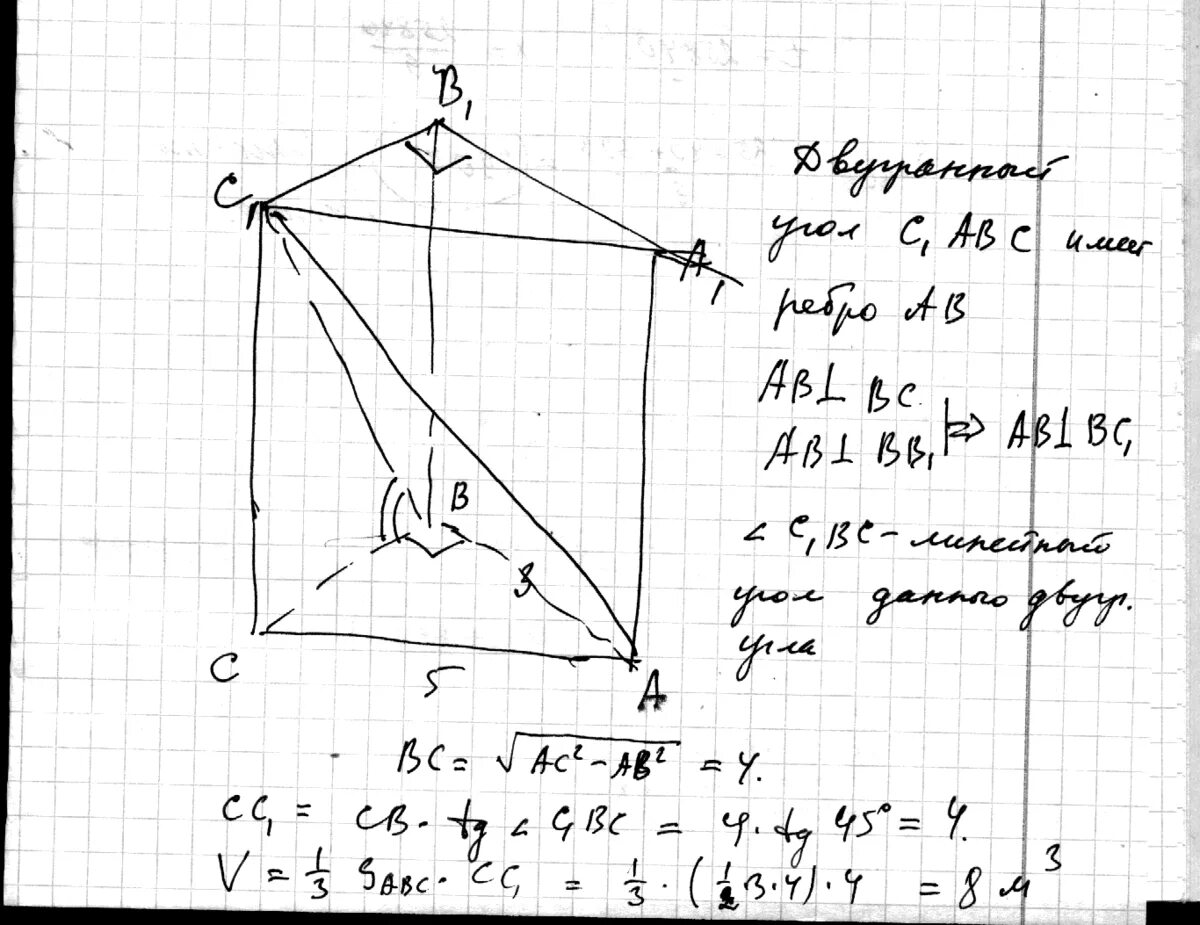 B₁
C₁
A₁
B
3
C
5
A
Двугранный
угол C₁ABC имеет
ребро AB
AB⊥ BC
AB⊥ BB₁ |⇒ AB⊥BC₁
∠ C₁BC – линейный
угол данного двугр.
угла
BC = √AC² – AB² = 4.
CC₁ = CB · tg ∠ C₁BC = 4 · tg 45° = 4.
V = 1/3 S_ABC · CC₁ = 1/3 · (1/2 3·4) · 4 = 8 м³